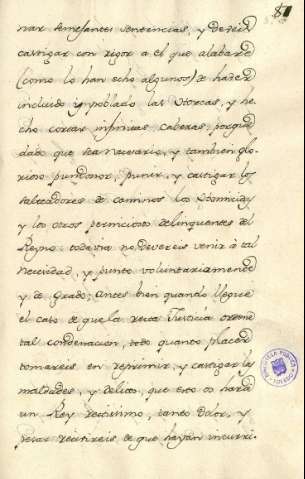 81
nar semejantes sentencias, y deveis
castigar con rigor a el que alabare
(como lo han echo algunos) de haver
incluido y poblado las Horcas, y he
cho cortar infinitas cabezas, porque
dado, que sea necesario, y tambien glo-
rioso pundonor, punir, y castigar los
salteadores de caminos los Homicidas
y los otros perniciosos delinquentes del
Reyno: todavia no devereis venir à tal
necesidad, y punto voluntariamente
y de Grado; antes bien quando llegue
el caso de que la recta Justicia ordene
tal condenacion, todo quanto placer
tomareis en reprimir, y castigar las
maldades, y delitos, que esto os hará
un Rey rectissimo, tanto dolor, y
pesar recivireis de que hayan incurri-